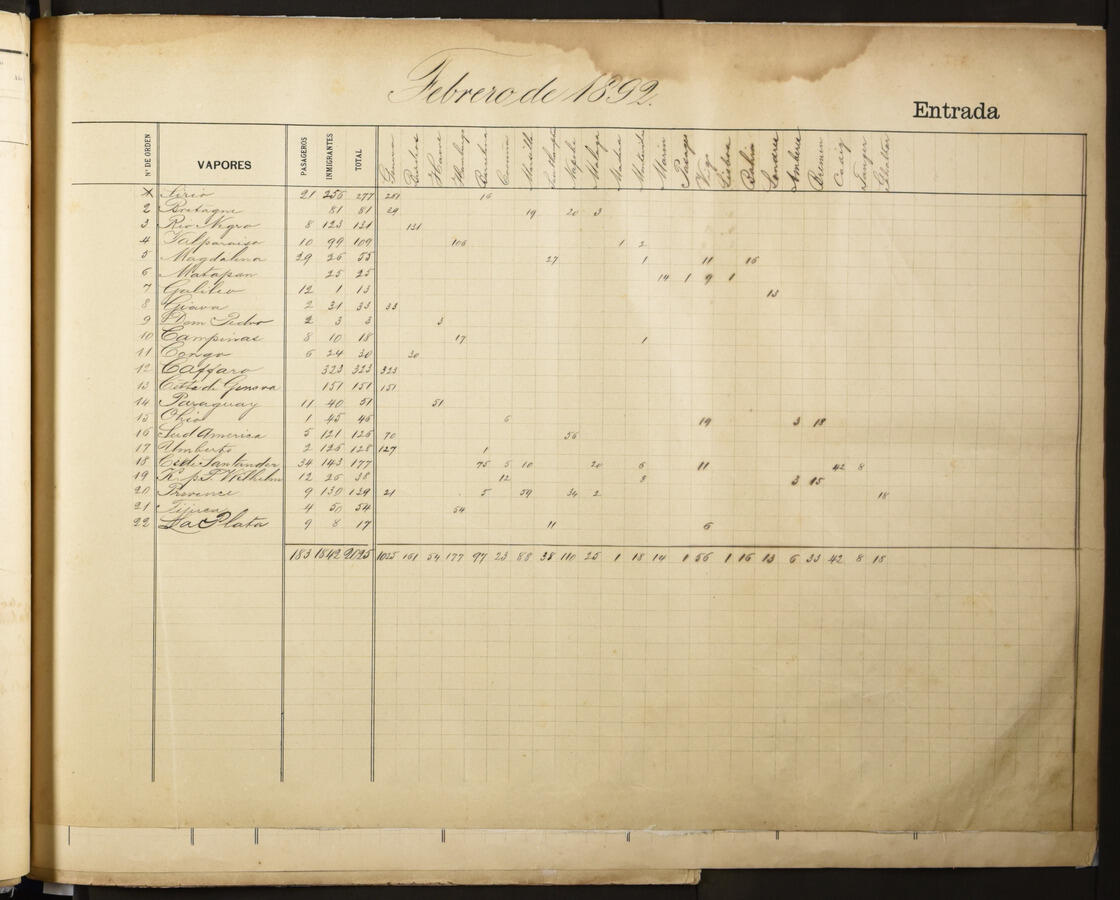 Febrero de 1892.
Entrada
Nº DE ORDEN VAPORES PASAGEROS INMIGRANTES TOTAL Genova Burdeos Havre Hamburgo Barcelona Coruña Marsella Southampton Napoles Malaga Marin Pasages Vigo Lisboa Bahia Londres Amberes Bremen Cadiz Tanger Gibraltar
Sirio 21 256 277 261 16
2 Bretagne 81 81 39 19 20 3
3 Rio Negro 8 123 131 131
4 Valparaiso 10 99 109 106 1 2
5 Magdalena 29 26 55 27 1 11 16
6 Matapan 25 25 14 1 9 1
7 Galileo 12 1 13 13
8 Giava 2 31 33 33
9 Dom Pedro 2 3 3 3
10 Campinas 8 10 18 17 1
11 Congo 6 24 30 30
12 Caffaro 323 323 323
13 Città di Genova 151 151 151
14 Paraguay 11 40 51 51
15 Ohio 1 45 46 6 19 3 18
16 Sud America 5 121 126 70 56
17 Umberto 2 126 128 127 1
18 C. de Santander 34 143 177 75 5 10 20 6 11 42 8
19 K. p. F. Wilhelm 12 26 38 12 8 3 15
20 Provence 9 130 139 21 5 59 34 2 18
21 Tijuca 4 50 54 54
22 La Plata 9 8 17 11 6
183 1842 2025 1025 161 54 177 97 23 88 38 110 25 1 18 14 1 56 1 16 13 6 33 42 8 18